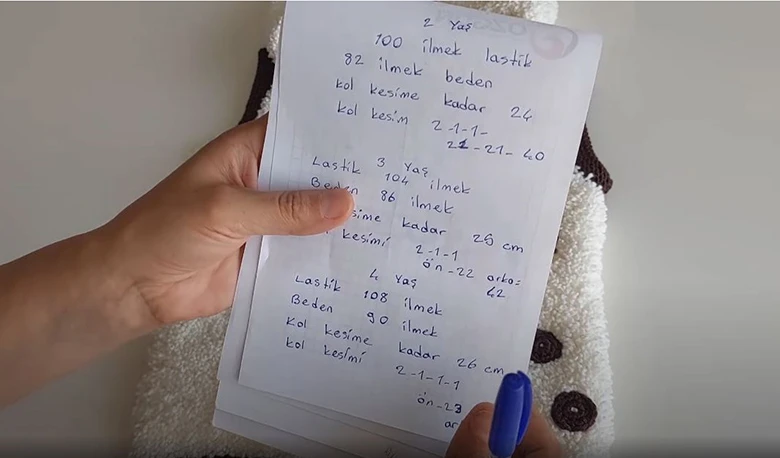 2 Yaş
100 ilmek lastik
82 ilmek beden
kol kesime kadar 24
kol kesim 2-1-1-
21-21-40
3 Yaş
Lastik 104 ilmek
Beden 86 ilmek
kadar 25 cm
kesimi 2-1-1
ön-22 arka=
42
4 Yaş
Lastik 108 ilmek
Beden 90 ilmek
kol kesime kadar 26 cm
kol kesimi 2-1-1-1
ön-23